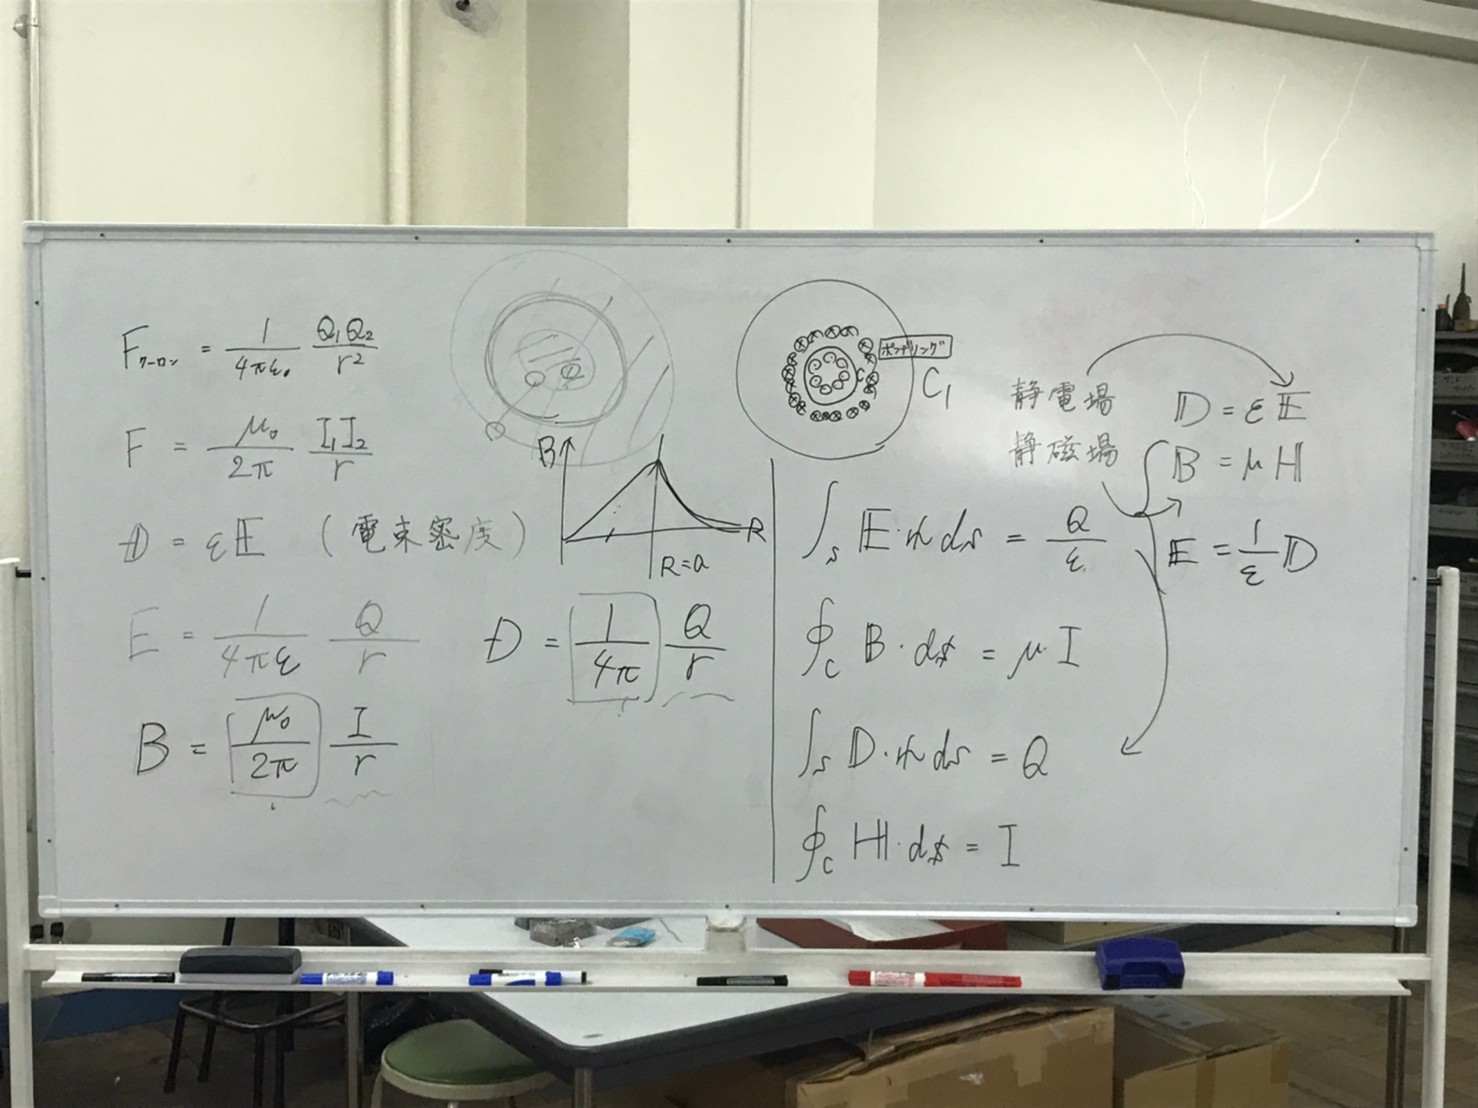 Fクーロン = 1/4πε₀ Q₁Q₂/r²
F = μ₀/2π I₁I₂/r
D = εE (電束密度)
E = 1/4πε Q/r
D = 1/4π Q/r
B = μ₀/2π I/r
B
R
R=a
ポンデリング
C
C₁
静電場
静磁場
D = εE
B = μH
E = 1/ε D
∫s E·n ds = Q/ε
∮c B·ds = μI
∫s D·n ds = Q
∮c H·ds = I